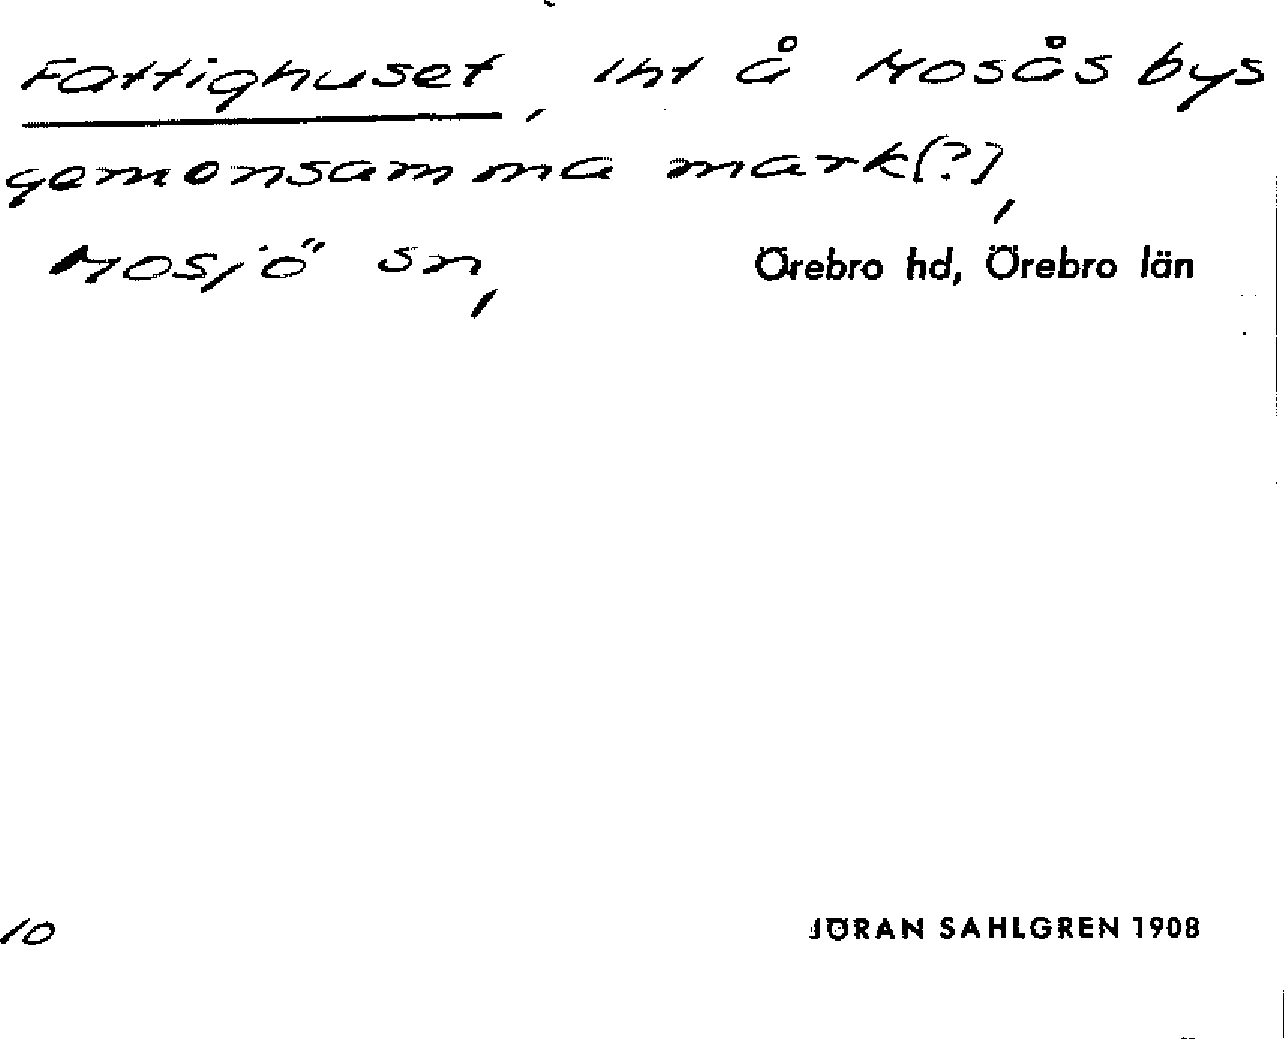 Fattighuset, lht å Mosås bys
gemensamma mark(?),
Mosjö sn, Örebro hd, Örebro län
10 JÖRAN SAHLGREN 1908